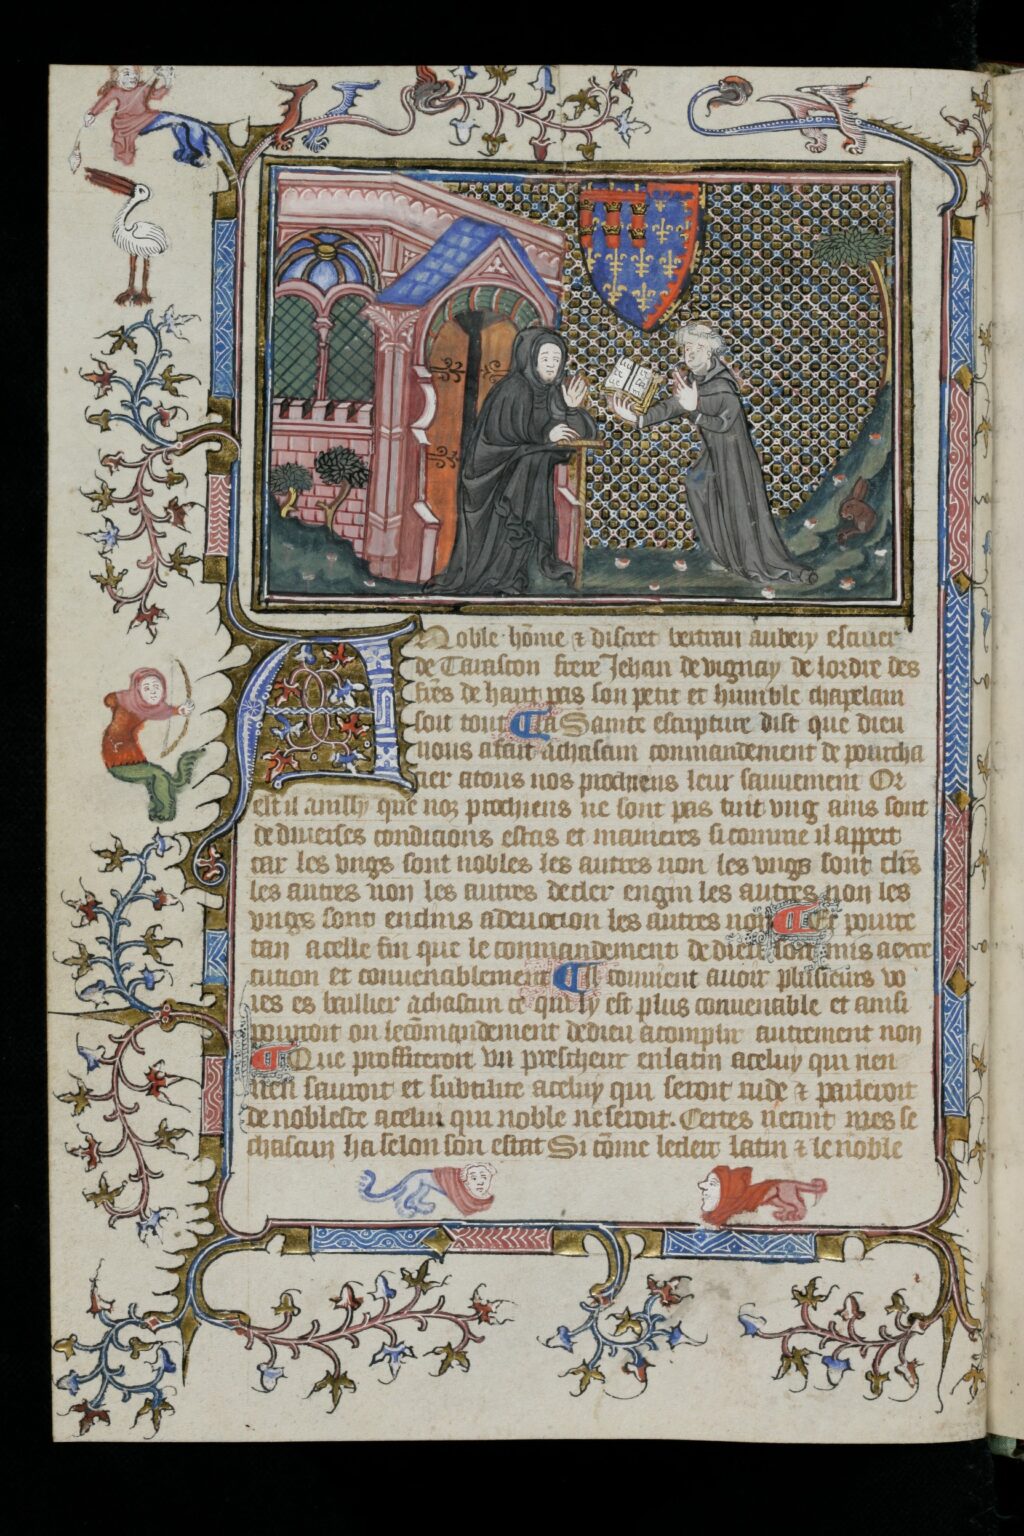 A Noble hõme ⁊ discret bertran aubery escuier
de Tarascon frere Jehan de vignay de lordre des
freˢ de haut pas son petit et humble chapelain
soit tout La Sainte escripture dist que dieu
nous a fait a chascun commandement de pourcha
cier a tous nos prochiens leur sauvement Or
est il ainssy que noz prochiens ne sont pas tuit vng ains sont
de diuerses condicions estas et manieres si comme il appert
car les vngs sont nobles les autres non les vngs sont clrˢ
les autres non les autres de cler engin les autres non les
vngs sont enclins a deuocion les autres non Et pource
tan a celle fin que le commandement de dieu soit mis a exe
cution et conuenablement Il conuient auoir plusieurs vo
ies es baillier a chascun ce qui li est plus conuenable et ainsi
pourroit on le cõmandement de dieu acomplir autrement non
Que proffiteroit vn prescheur en latin a celuy qui rien
nen sauroit et subtilite a celuy qui seroit rude ⁊ parleroit
de noblesse a celui qui noble ne seroit. Certes neant mes se
chascun ha selon son estat Si cõme le clerc latin ⁊ le noble